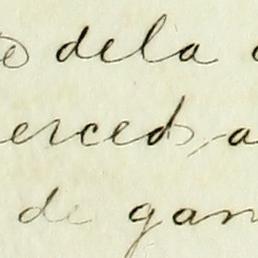 dela
erced, a
de gan